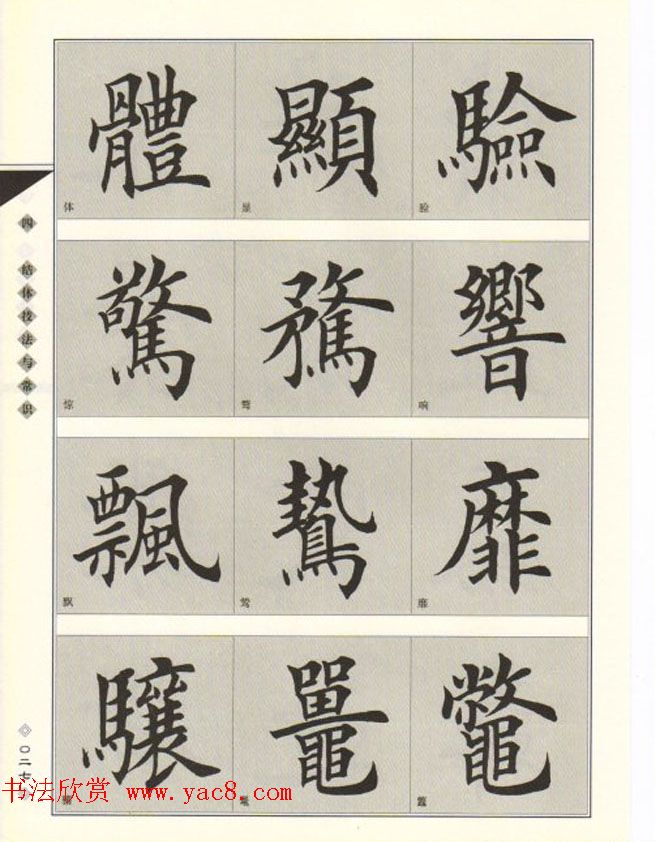 體 顯 驗
体 显 验
四 结体技法与常识
驚 騖 響
惊 骛 响
飄 鷙 靡
飘 鸷 靡
驤 鼉 鼈
〇二七
书法欣赏 www.yac8.com